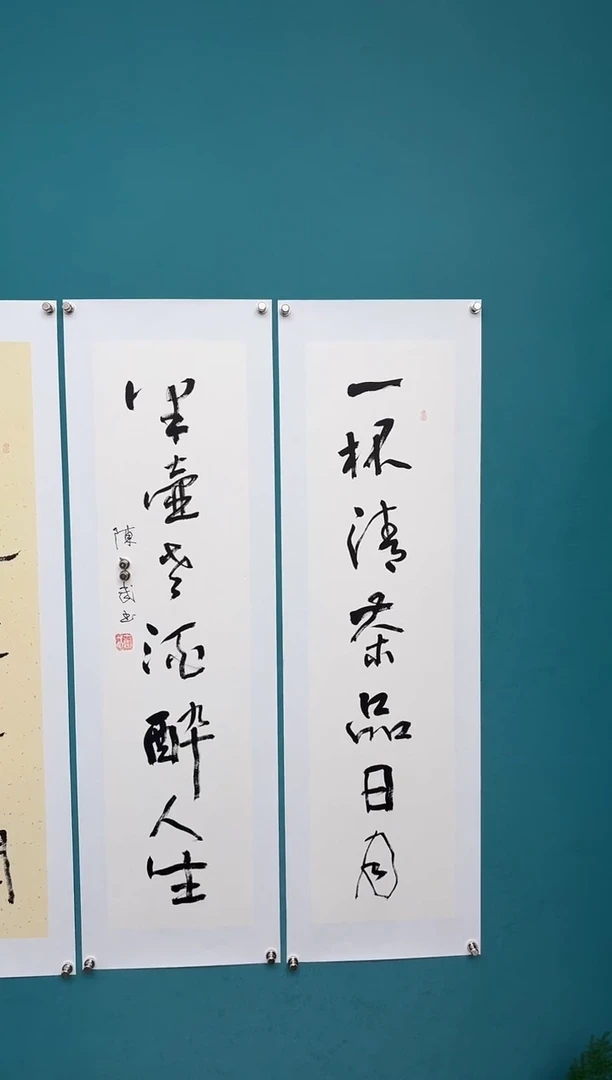 一杯清茶品日月
半壺老酒醉人生
陳 武书